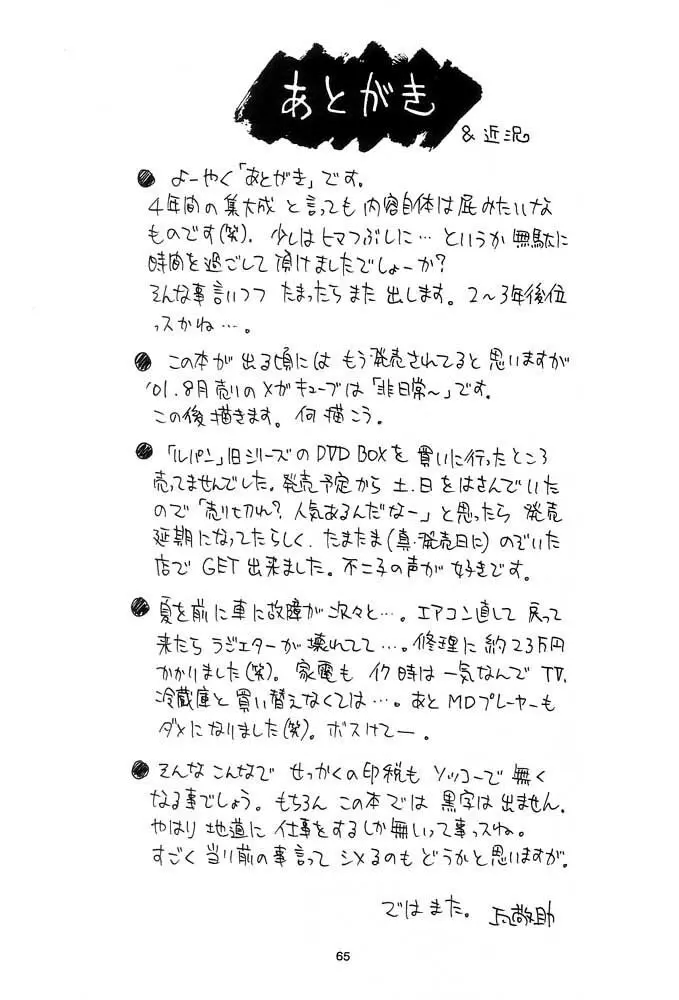 あとがき
&近況
● よーやく「あとがき」です。
4年間の集大成と言っても内容自体は屁みたいな
ものです(笑)。少しはヒマつぶしに…というか無駄に
時間を過ごして頂けましたでしょーか?
そんな事言いつつ たまったらまた出します。2〜3年後位
っスかね…。
● この本が出る頃にはもう発売されてると思いますが
'01.8月売りのメガキューブは「非日常〜」です。
この後描きます。何描こう。
● 「ルパン」旧シリーズのDVD BOXを買いに行ったところ
売ってませんでした。発売予定から土.日をはさんでいた
ので「売り切れ?人気あるんだなー」と思ったら発売
延期になってたらしく、たまたま(真・発売日に)のぞいた
店でGET出来ました。不二子の声が好きです。
● 夏を前に車に故障が次々と…。エアコン直して戻って
来たらラジエターが壊れてて…。修理に約23万円
かかりました(笑)。家電もイク時は一気なんでTV,
冷蔵庫と買い替えなくては…。あとMDプレーヤーも
ダメになりました(笑)。ボスけてー。
● そんなこんなで せっかくの印税もソッコーで無く
なる事でしょう。もちろんこの本では黒字は出ません。
やはり地道に仕事をするしか無いって事っスね。
すごく当り前の事言ってシメるのもどうかと思いますが。
ではまた。
65